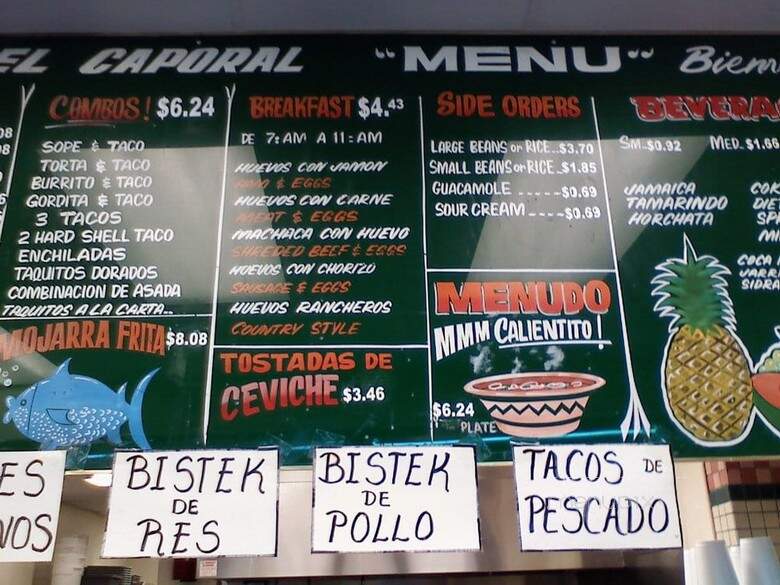 EL CAPORAL "MENU"
08
08
COMBOS! $6.24
SOPE & TACO
TORTA & TACO
BURRITO & TACO
GORDITA & TACO
3 TACOS
2 HARD SHELL TACO
ENCHILADAS
TAQUITOS DORADOS
COMBINACION DE ASADA
TAQUITOS A LA CARTA..
MOJARRA FRITA $8.08
BREAKFAST $4.43
DE 7:AM A 11:AM
HUEVOS CON JAMON
HAM & EGGS
HUEVOS CON CARNE
MEAT & EGGS
MACHACA CON HUEVO
SHREDED BEEF & EGGS
HUEVOS CON CHORIZO
SAUSAGE & EGGS
HUEVOS RANCHEROS
COUNTRY STYLE
TOSTADAS DE
CEVICHE $3.46
SIDE ORDERS
LARGE BEANS or RICE..$3.70
SMALL BEANS or RICE..$1.85
GUACAMOLE -----$0.69
SOUR CREAM -----$0.69
MENUDO
MMM CALIENTITO!
$6.24
PLATE
SM..$0.92 MED. $1.66
JAMAICA
TAMARINDO
HORCHATA
COCA
SIDRA
ES
NOS
BISTEK
DE
RES
BISTEK
DE
POLLO
TACOS DE
PESCADO